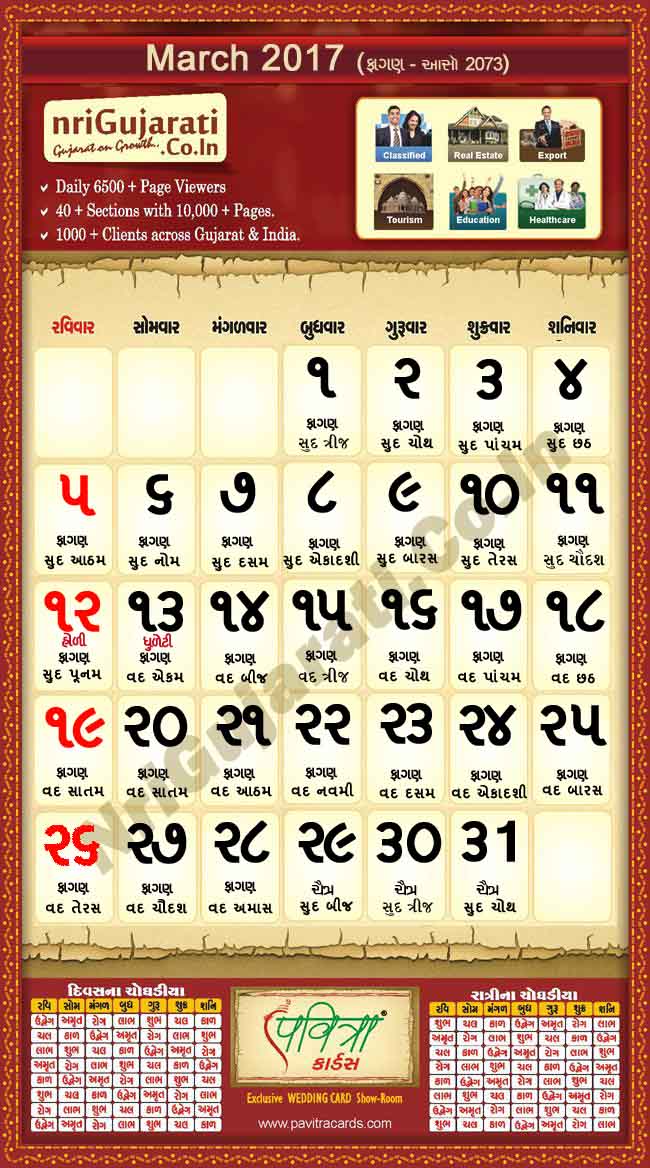 March 2017 (ફાગણ - આસો 2073)
nriGujarati
Gujarat on Growth..
.Co.In
Daily 6500 + Page Viewers
40 + Sections with 10,000 + Pages.
1000 + Clients across Gujarat & India.
Classified Real Estate Export
Tourism Education Healthcare
રવિવાર સોમવાર મંગળવાર બુધવાર ગુરૂવાર શુક્રવાર શનિવાર
૧ ૨ ૩ ૪
ફાગણ ફાગણ ફાગણ ફાગણ
સુદ ત્રીજ સુદ ચોથ સુદ પાંચમ સુદ છઠ
૫ ૬ ૭ ૮ ૯ ૧૦ ૧૧
ફાગણ ફાગણ ફાગણ ફાગણ ફાગણ ફાગણ ફાગણ
સુદ આઠમ સુદ નોમ સુદ દસમ સુદ એકાદશી સુદ બારસ સુદ તેરસ સુદ ચૌદશ
૧૨ ૧૩ ૧૪ ૧૫ ૧૬ ૧૭ ૧૮
હોળી ધુળેટી
ફાગણ ફાગણ ફાગણ ફાગણ ફાગણ ફાગણ ફાગણ
સુદ પૂનમ વદ એકમ વદ બીજ વદ ત્રીજ વદ ચોથ વદ પાંચમ વદ છઠ
૧૯ ૨૦ ૨૧ ૨૨ ૨૩ ૨૪ ૨૫
ફાગણ ફાગણ ફાગણ ફાગણ ફાગણ ફાગણ ફાગણ
વદ સાતમ વદ સાતમ વદ આઠમ વદ નવમી વદ દસમ વદ એકાદશી વદ બારસ
૨૬ ૨૭ ૨૮ ૨૯ ૩૦ ૩૧
ફાગણ ફાગણ ફાગણ ચૈત્ર ચૈત્ર ચૈત્ર
વદ તેરસ વદ ચૌદશ વદ અમાસ સુદ બીજ સુદ ત્રીજ સુદ ચોથ
NriGujarati.Co.In
દિવસના ચોઘડીયા
રવિ સોમ મંગળ બુધ ગુરૂ શુક્ર શનિ
ઉદ્વેગ અમૃત રોગ લાભ શુભ ચલ કાળ
ચલ કાળ ઉદ્વેગ અમૃત રોગ લાભ શુભ
લાભ શુભ ચલ કાળ ઉદ્વેગ અમૃત રોગ
અમૃત રોગ લાભ શુભ ચલ કાળ ઉદ્વેગ
કાળ ઉદ્વેગ અમૃત રોગ લાભ શુભ ચલ
શુભ ચલ કાળ ઉદ્વેગ અમૃત રોગ લાભ
રોગ લાભ શુભ ચલ કાળ ઉદ્વેગ અમૃત
ઉદ્વેગ અમૃત રોગ લાભ શુભ ચલ કાળ
પવિત્રા®
કાર્ડસ
Exclusive WEDDING CARD Show-Room
www.pavitracards.com
રાત્રીના ચોઘડીયા
રવિ સોમ મંગળ બુધ ગુરૂ શુક્ર શનિ
શુભ ચલ કાળ ઉદ્વેગ અમૃત રોગ લાભ
અમૃત રોગ લાભ શુભ ચલ કાળ ઉદ્વેગ
ચલ કાળ ઉદ્વેગ અમૃત રોગ લાભ શુભ
રોગ લાભ શુભ ચલ કાળ ઉદ્વેગ અમૃત
કાળ ઉદ્વેગ અમૃત રોગ લાભ શુભ ચલ
લાભ શુભ ચલ કાળ ઉદ્વેગ અમૃત રોગ
ઉદ્વેગ અમૃત રોગ લાભ શુભ ચલ કાળ
શુભ ચલ કાળ ઉદ્વેગ અમૃત રોગ લાભ